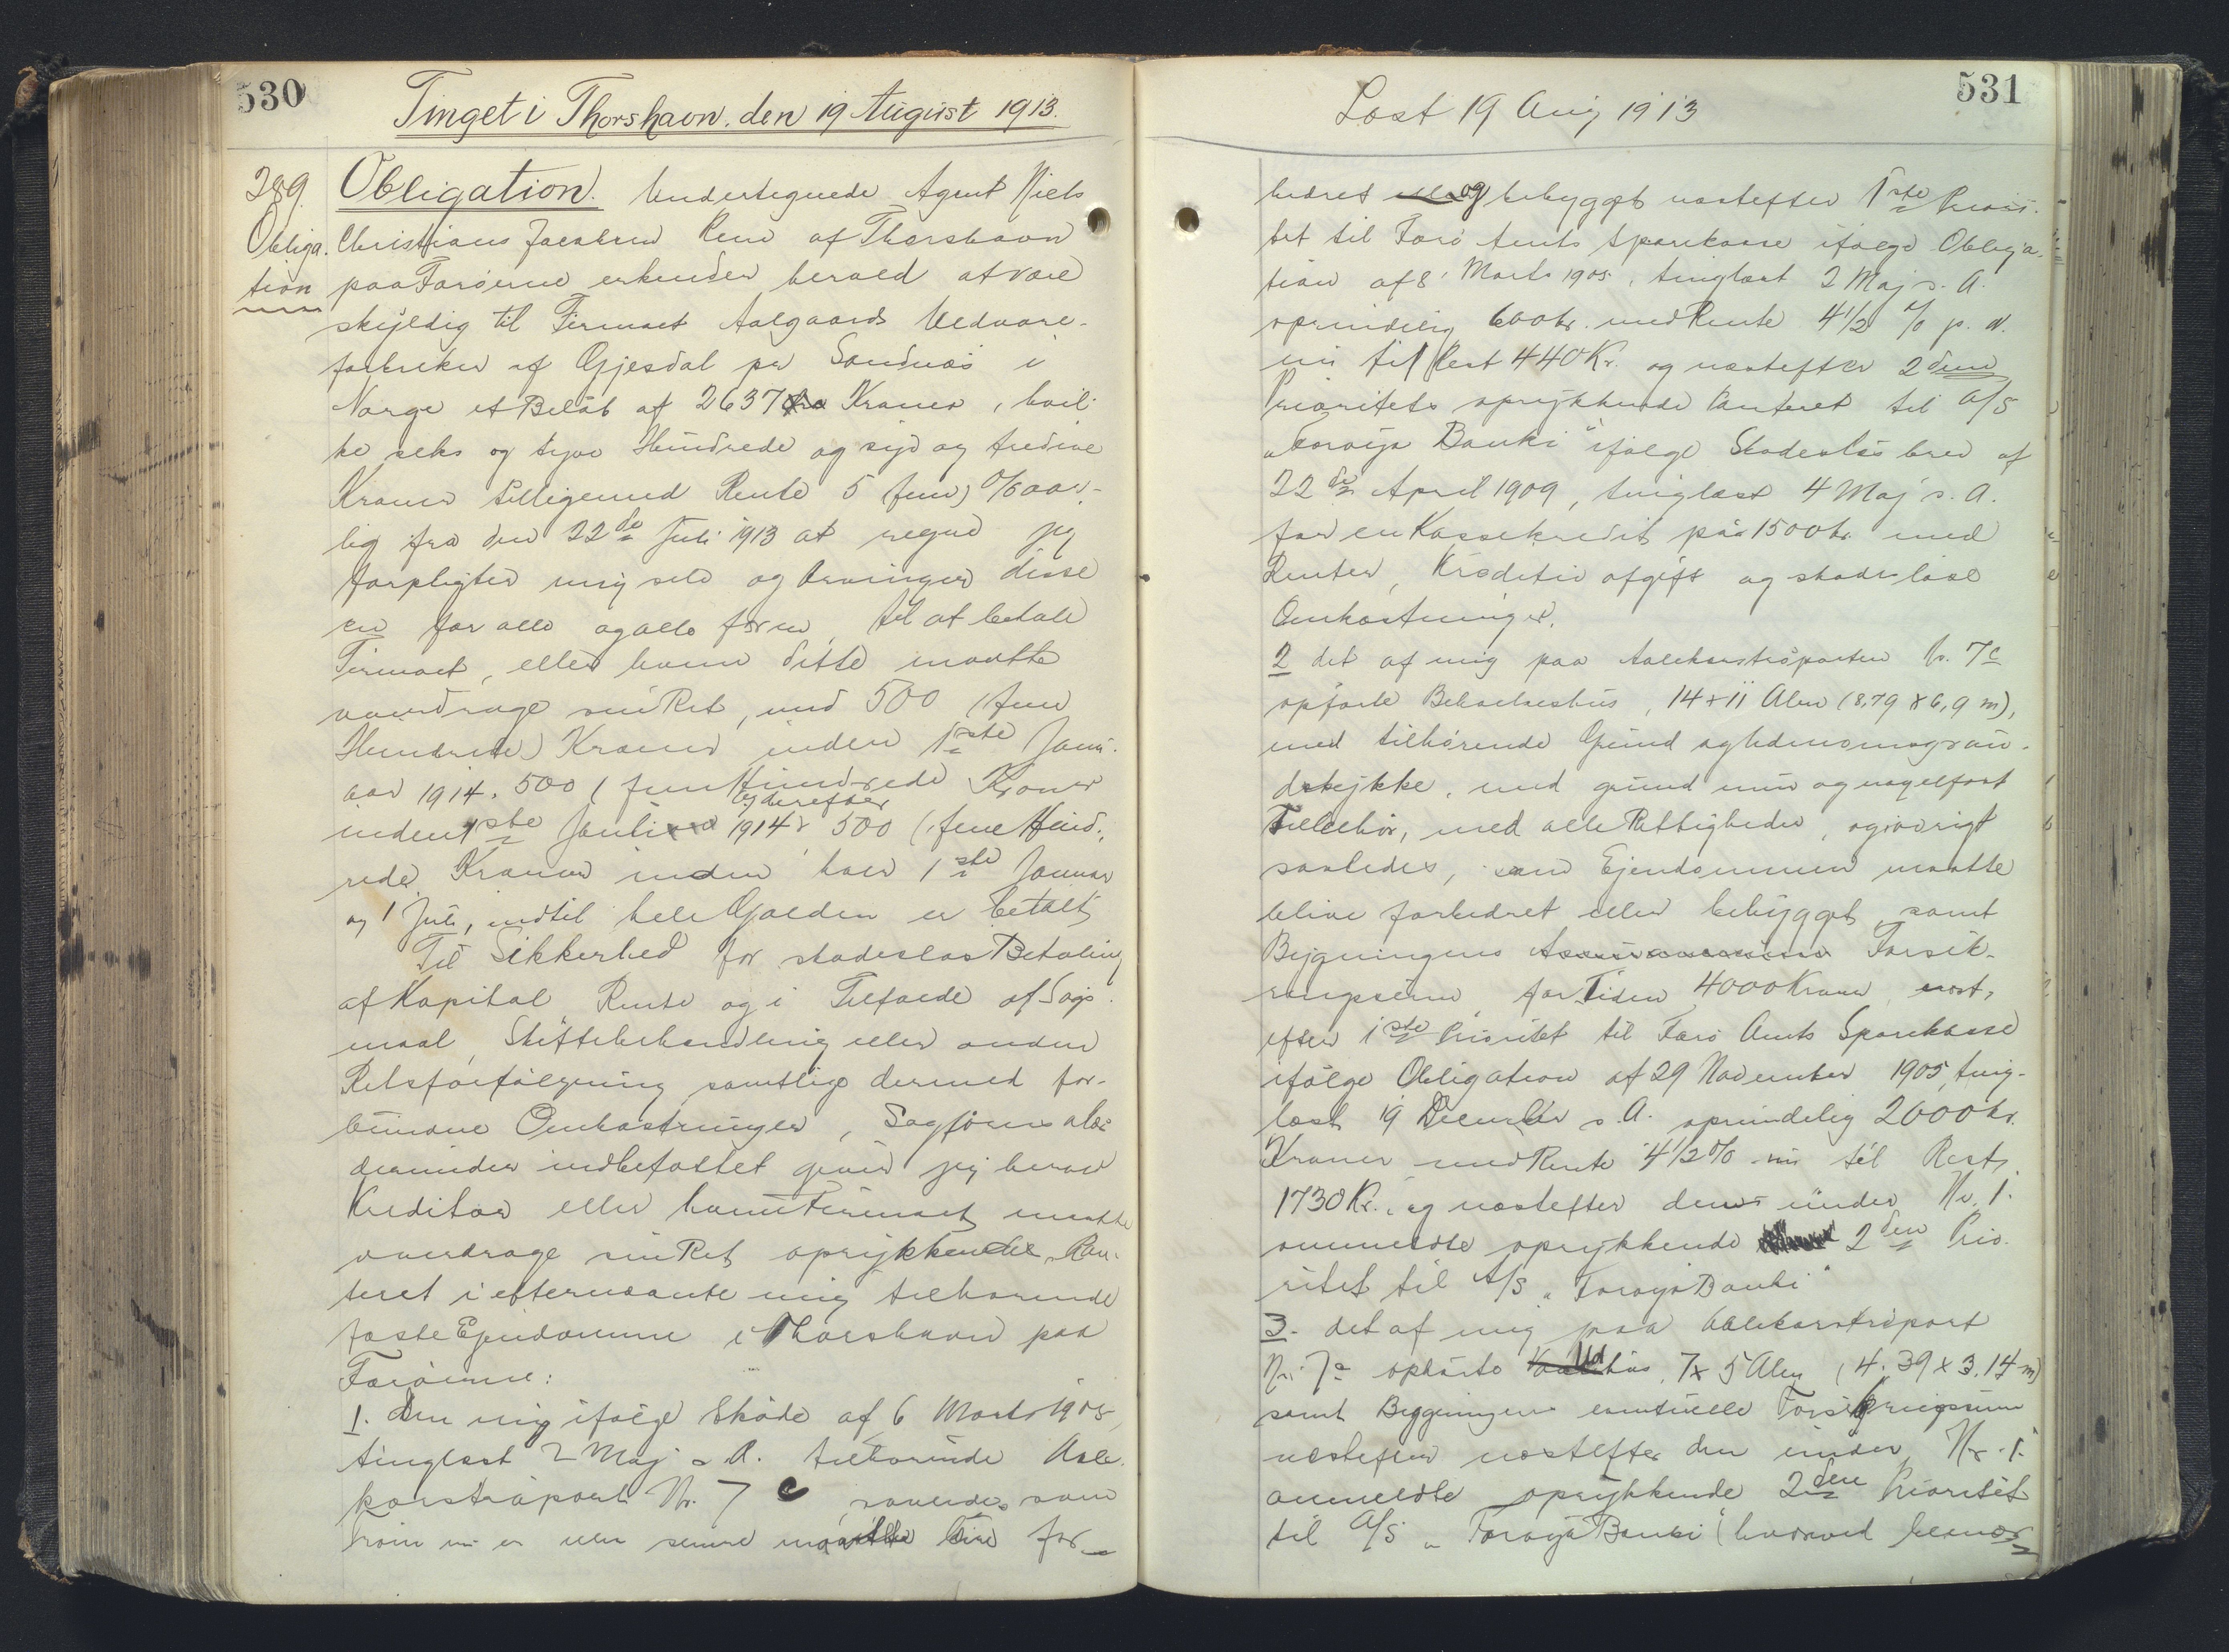 530
Tinget i Thorshavn. den 19 August 1913.
289.
Obliga-
tion
Obligation. Undertegnede Agent Niels
Christians Jacobsen Rein af Thorshavn
paa Færöerne erkender herved at være
skyldig til Firmaet Aalgaards Uldvare-
fabriker af Gjesdal pr Sandnæs i
Norge et Belöb af 2637 Kroner, hvil-
ke seks og tyve Hundrede og syv og tredive
Kroner tilligemed Rente 5 (fem) % aar-
lig fra den 22de Juli 1913 at regne jeg
forpligter mig selv og Arvinger disse
en for alle og alle for en, til at betale
Firmaet, eller hvem dette maatte
overdrage sin Ret, med 500 (fem
Hundrede) Kroner inden 1ste Janu-
ar 1914. 500 (fem Hundrede Kroner
inden 1ste Juli 1914 og derefter 500 (fem Hund-
rede Kroner inden hver 1ste Januar
og 1 Juli, indtil hele Gælden er betalt
Til Sikkerhed for skadeslös Betaling
af Kapital Rente og i Tilfælde af Sags-
maal, Skiftebehandling eller anden
Retsforfölgning samtlige dermed for-
bundne Omkostninger, Sagförersalær
derunder indbefattet giver jeg herved
Kreditor eller hvem Firmaet maatte
overdrage sin Ret oprykkende Pan-
teret i efternævnte mig tilhörende
faste Ejendomme i Thorshavn paa
Færöerne:
1. den mig ifölge Sköde af 6 Marts 1905,
tinglæst 2 Maj s. A. tilhörende Aale-
kerströpart Nr. 7 c, saaledes som
den nu er eller senere maatte blive for-
531
Læst 19 Aug 1913
bedret og bebygget næstefter 1ste Priori-
tet til Færö Amts Sparekasse ifölge Obliga-
tion af 8 Marts 1905, tinglæst 2 Maj s. A.
oprindelig 600 kr. med Rente 4 1/2 % p. a.
nu til Rest 440 Kr. og næstefter 2den
Prioritets oprykkende Panteret til A/S
"Föroya Banki" ifölge Skadeslösbrev af
22de April 1909, tinglæst 4 Maj s. A.
for en Kassekredit paa 1500 kr. med
Renter, Kreditivafgift og skadeslöse
Omkostninger.
2 det af mig paa Aalekerströparten Nr. 7c
opförte Beboelseshus, 14 x 11 Alen (8,79 x 6,9 m),
med tilhörende Grund og
dstykke, med grund mur og nagelfast
Tilbehör, med alle Rettigheder, og iövrigt
saaledes, som Ejendommen maatte
blive forbedret eller bebygget, samt
Bygningens Forsik-
ringssum for Tiden 4000 Kroner næst-
efter 1ste Prioritet til Færö Amts Sparekasse
ifölge Obligation af 29 November 1905, ting-
læst 19 December s. A. oprindelig 2000 kr.
Kroner med Rente 4 1/2 % nu til Rest
1730 Kr. og næstefter den under Nr. 1.
ommeldte oprykkende 2den Prio-
ritet til A/S "Föroya Banki"
3. det af mig paa Aalekerströpart
Nr. 7c opförte hus, 7 x 5 Alen (4.39 x 3.14 m)
samt Bygningens eventuelle Forsikringssum
næstefter næstefter den under Nr. 1.
ommeldte oprykkende 2den Prioritet
til A/S "Föroya Banki" (hvorved bemær-